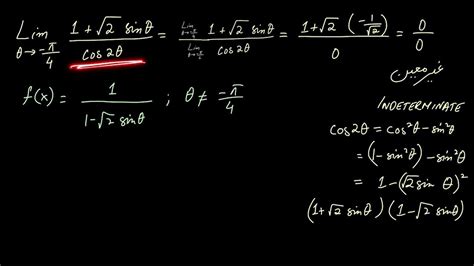 Lim θ→-π/4 (1+√2 sinθ)/(cos2θ) = (Lim θ→-π/4 1+√2 sinθ)/(Lim θ→-π/4 cos2θ) = (1+√2 (-1/√2))/0 = 0/0
غیر معین
f(x) = 1/(1-√2 sinθ) ; θ≠ -π/4
INDETERMINATE
cos2θ = cos²θ-sin²θ
= (1-sin²θ)-sin²θ
= 1-(√2 sin θ)²
(1+√2 sinθ)(1-√2 sinθ)